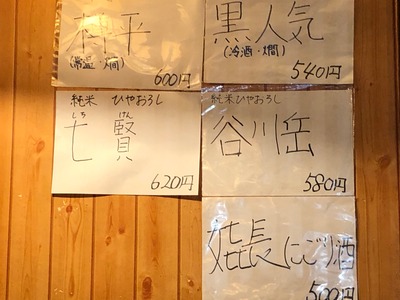 平
(常温・燗)
600円
黒人気
(冷酒・燗)
540円
純米 ひやおろし
しち けん
七賢
620円
純米 ひやおろし
谷川岳
580円
長にごり酒
500円